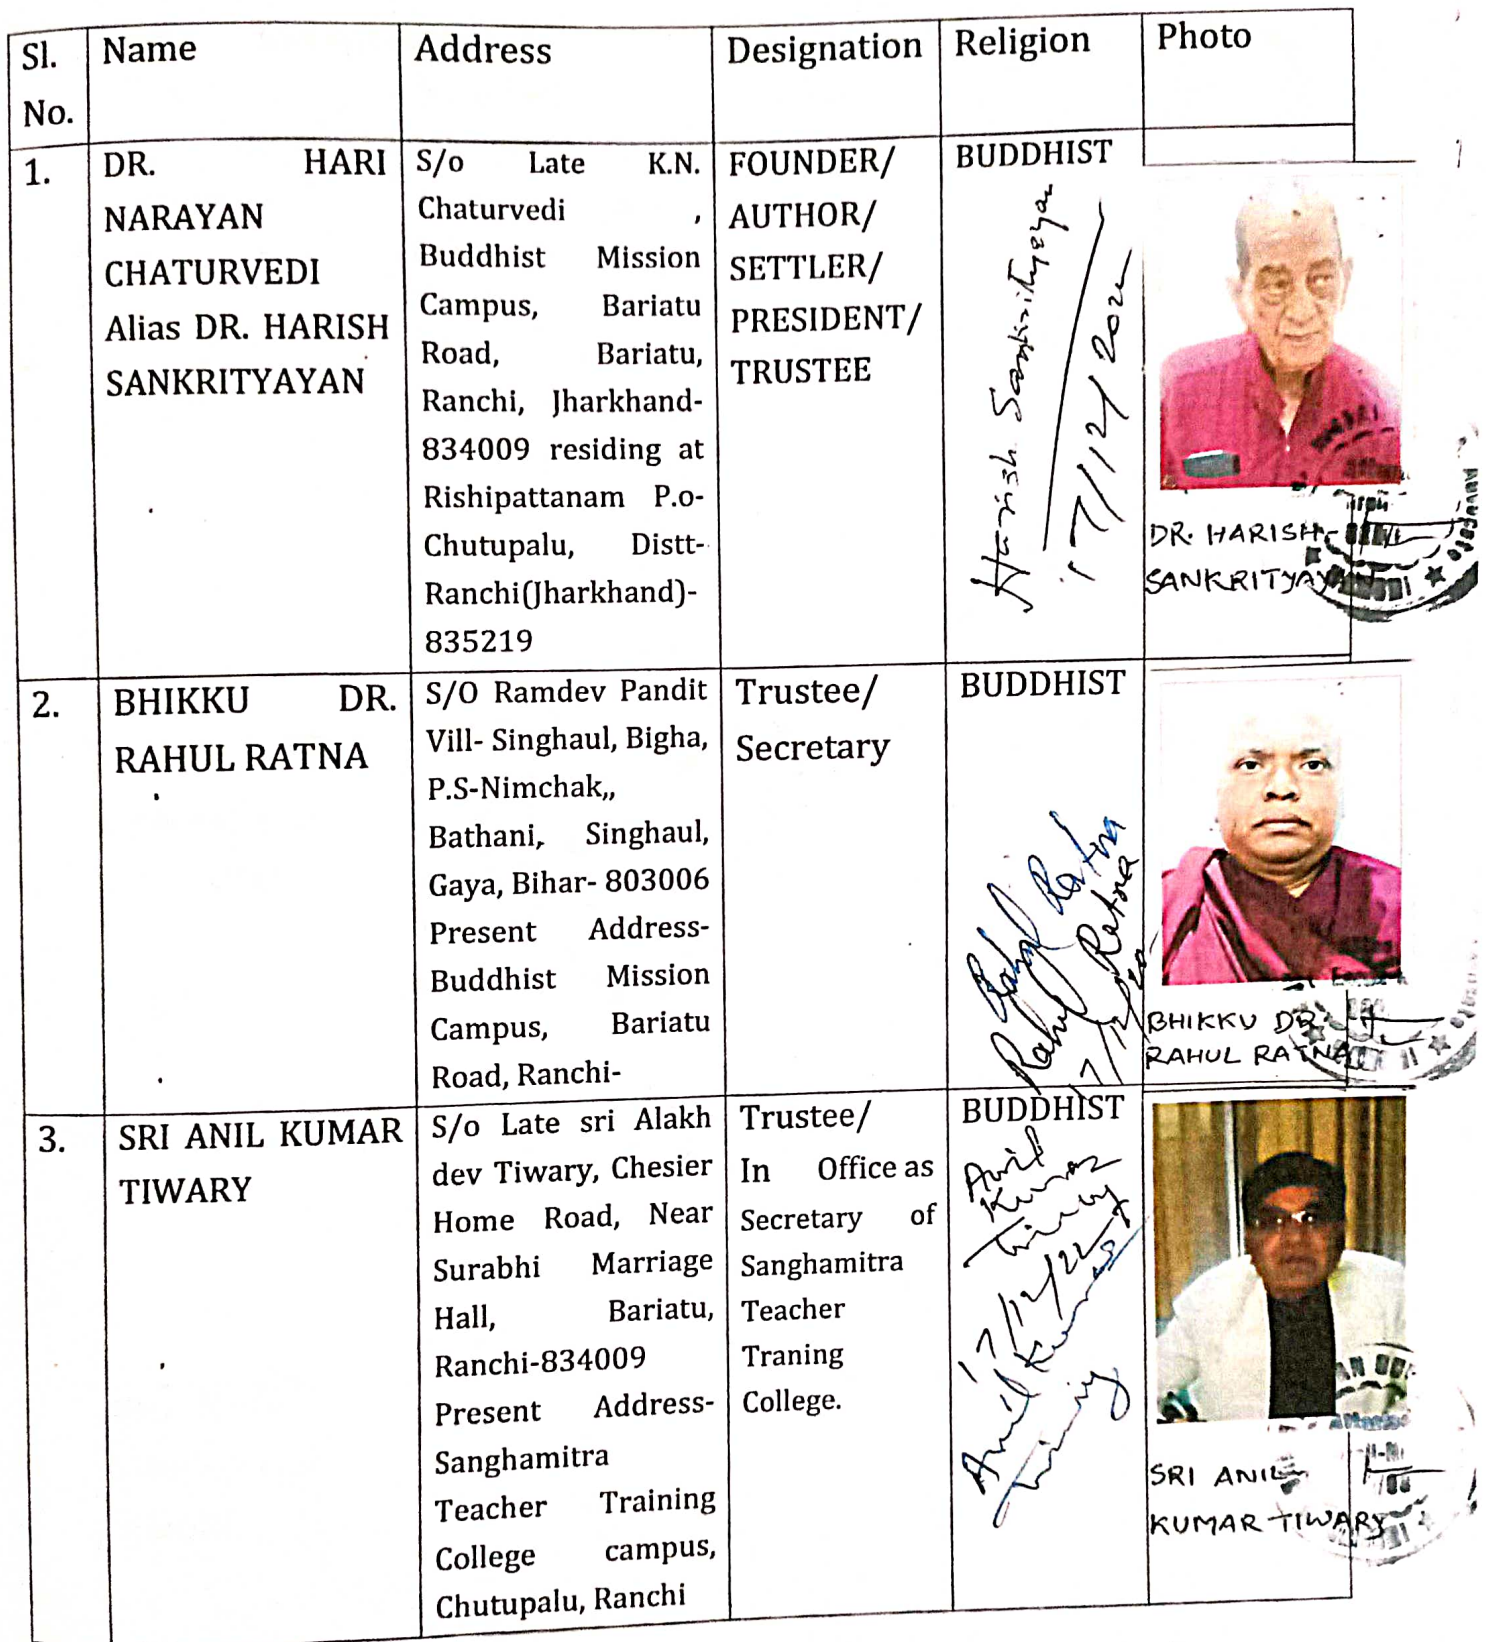 Sl. No.
Name
Address
Designation
Religion
Photo
1.
DR. HARI
NARAYAN
CHATURVEDI
Alias DR. HARISH
SANKRITYAYAN
S/o Late K.N.
Chaturvedi ,
Buddhist Mission
Campus, Bariatu
Road, Bariatu,
Ranchi, Jharkhand-
834009 residing at
Rishipattanam P.o-
Chutupalu, Distt-
Ranchi(Jharkhand)-
835219
FOUNDER/
AUTHOR/
SETTLER/
PRESIDENT/
TRUSTEE
BUDDHIST
Harish Sankrityayan
17/12/2022
DR. HARISH
SANKRITYAYAN
2.
BHIKKU DR.
RAHUL RATNA
S/O Ramdev Pandit
Vill- Singhaul, Bigha,
P.S-Nimchak,,
Bathani, Singhaul,
Gaya, Bihar- 803006
Present Address-
Buddhist Mission
Campus, Bariatu
Road, Ranchi-
Trustee/
Secretary
BUDDHIST
Rahul Ratna
Rahul Ratna
BHIKKU DR.
RAHUL RATNA
3.
SRI ANIL KUMAR
TIWARY
S/o Late sri Alakh
dev Tiwary, Chesier
Home Road, Near
Surabhi Marriage
Hall, Bariatu,
Ranchi-834009
Present Address-
Sanghamitra
Teacher Training
College campus,
Chutupalu, Ranchi
Trustee/
In Office as
Secretary of
Sanghamitra
Teacher
Traning
College.
BUDDHIST
Anil
Kumar
Tiwary
17/12/22
Anil Kumar
Tiwary
SRI ANIL
KUMAR TIWARY